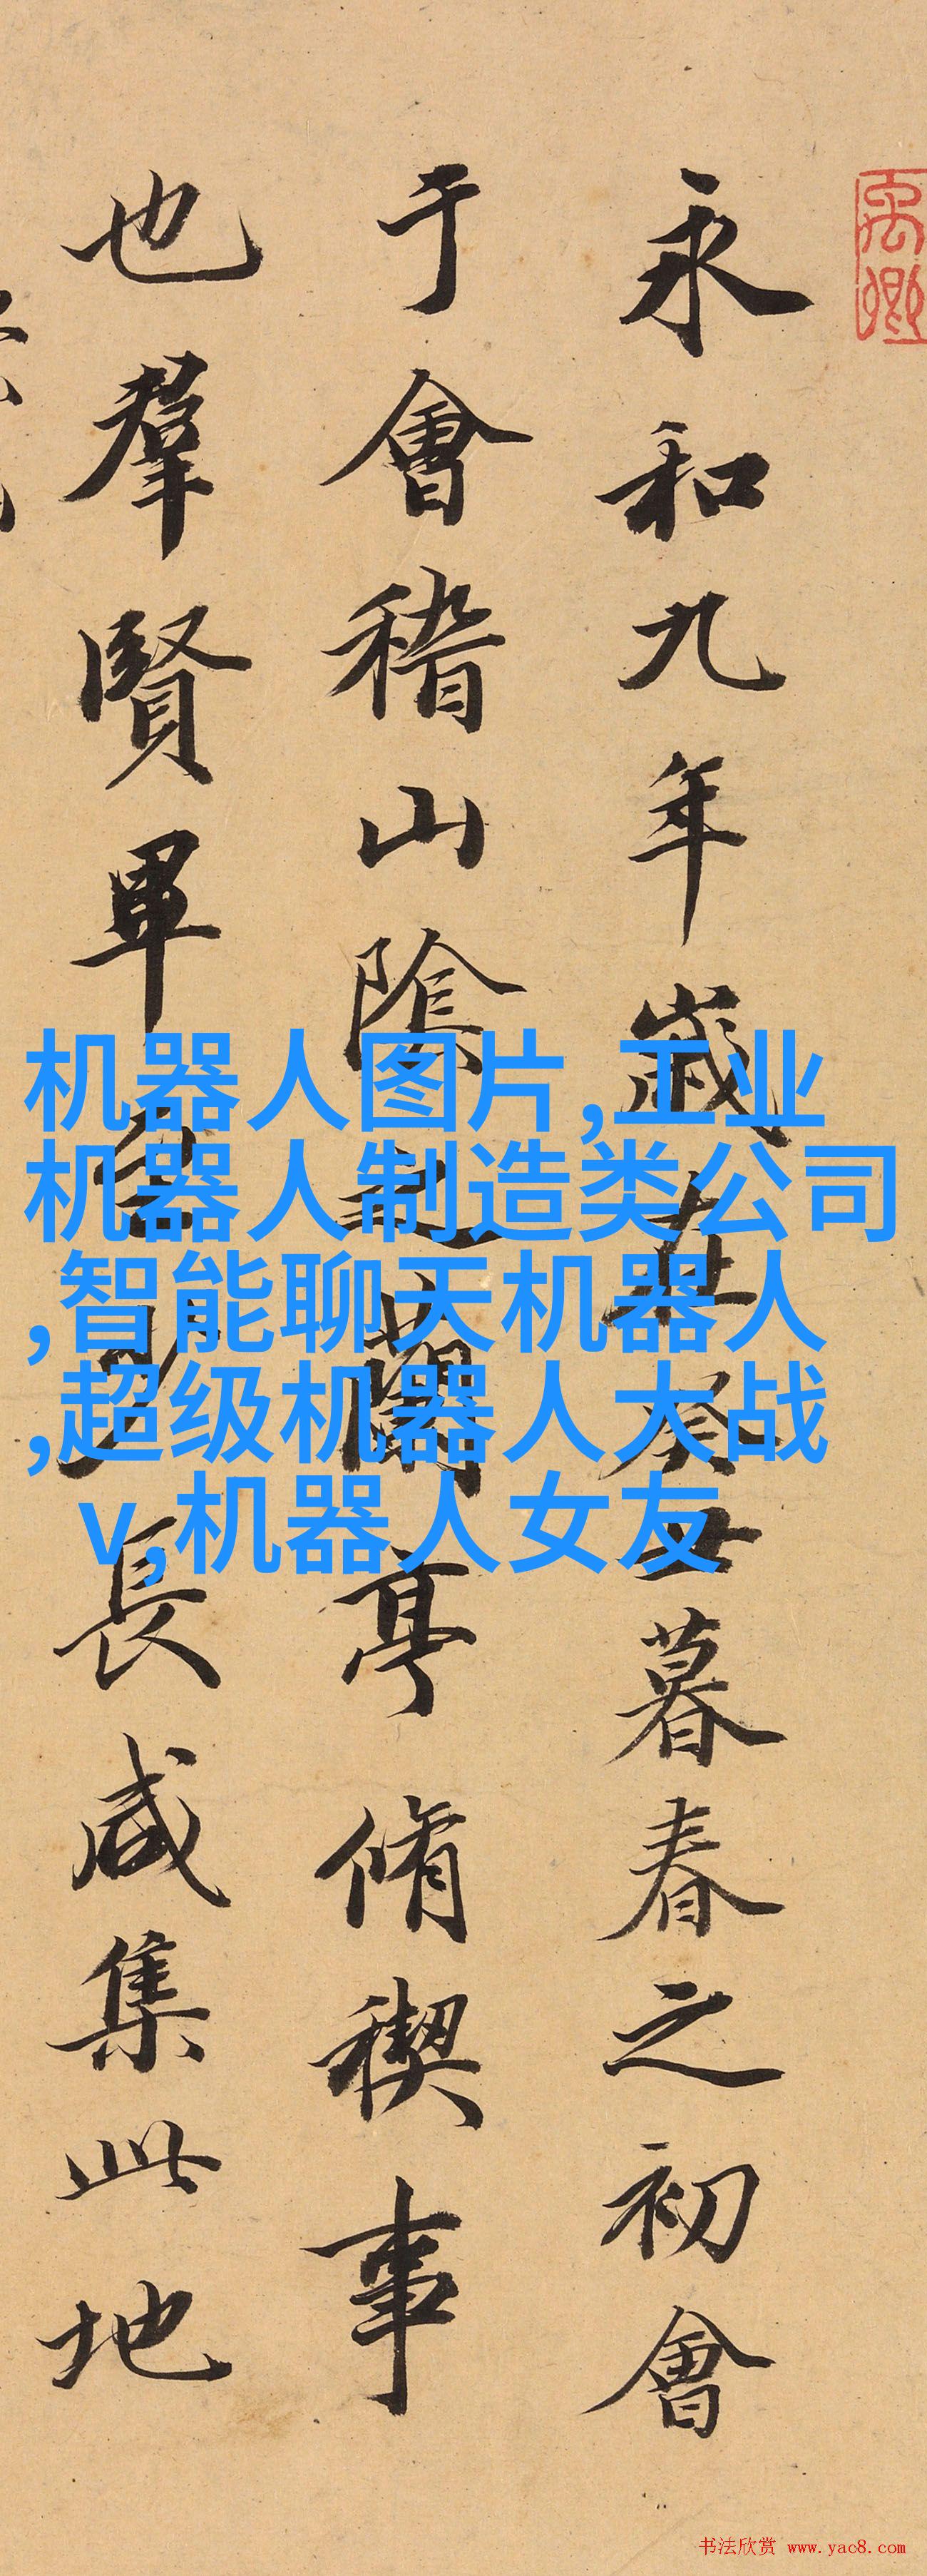 永和九年歲在癸丑暮春之初會
于會稽山陰之蘭亭脩稧事
也羣賢畢至少長咸集此地
机器人图片,工业
机器人制造类公司
,智能聊天机器人
,超级机器人大战
v,机器人女友
书法欣赏 www.yac8.com